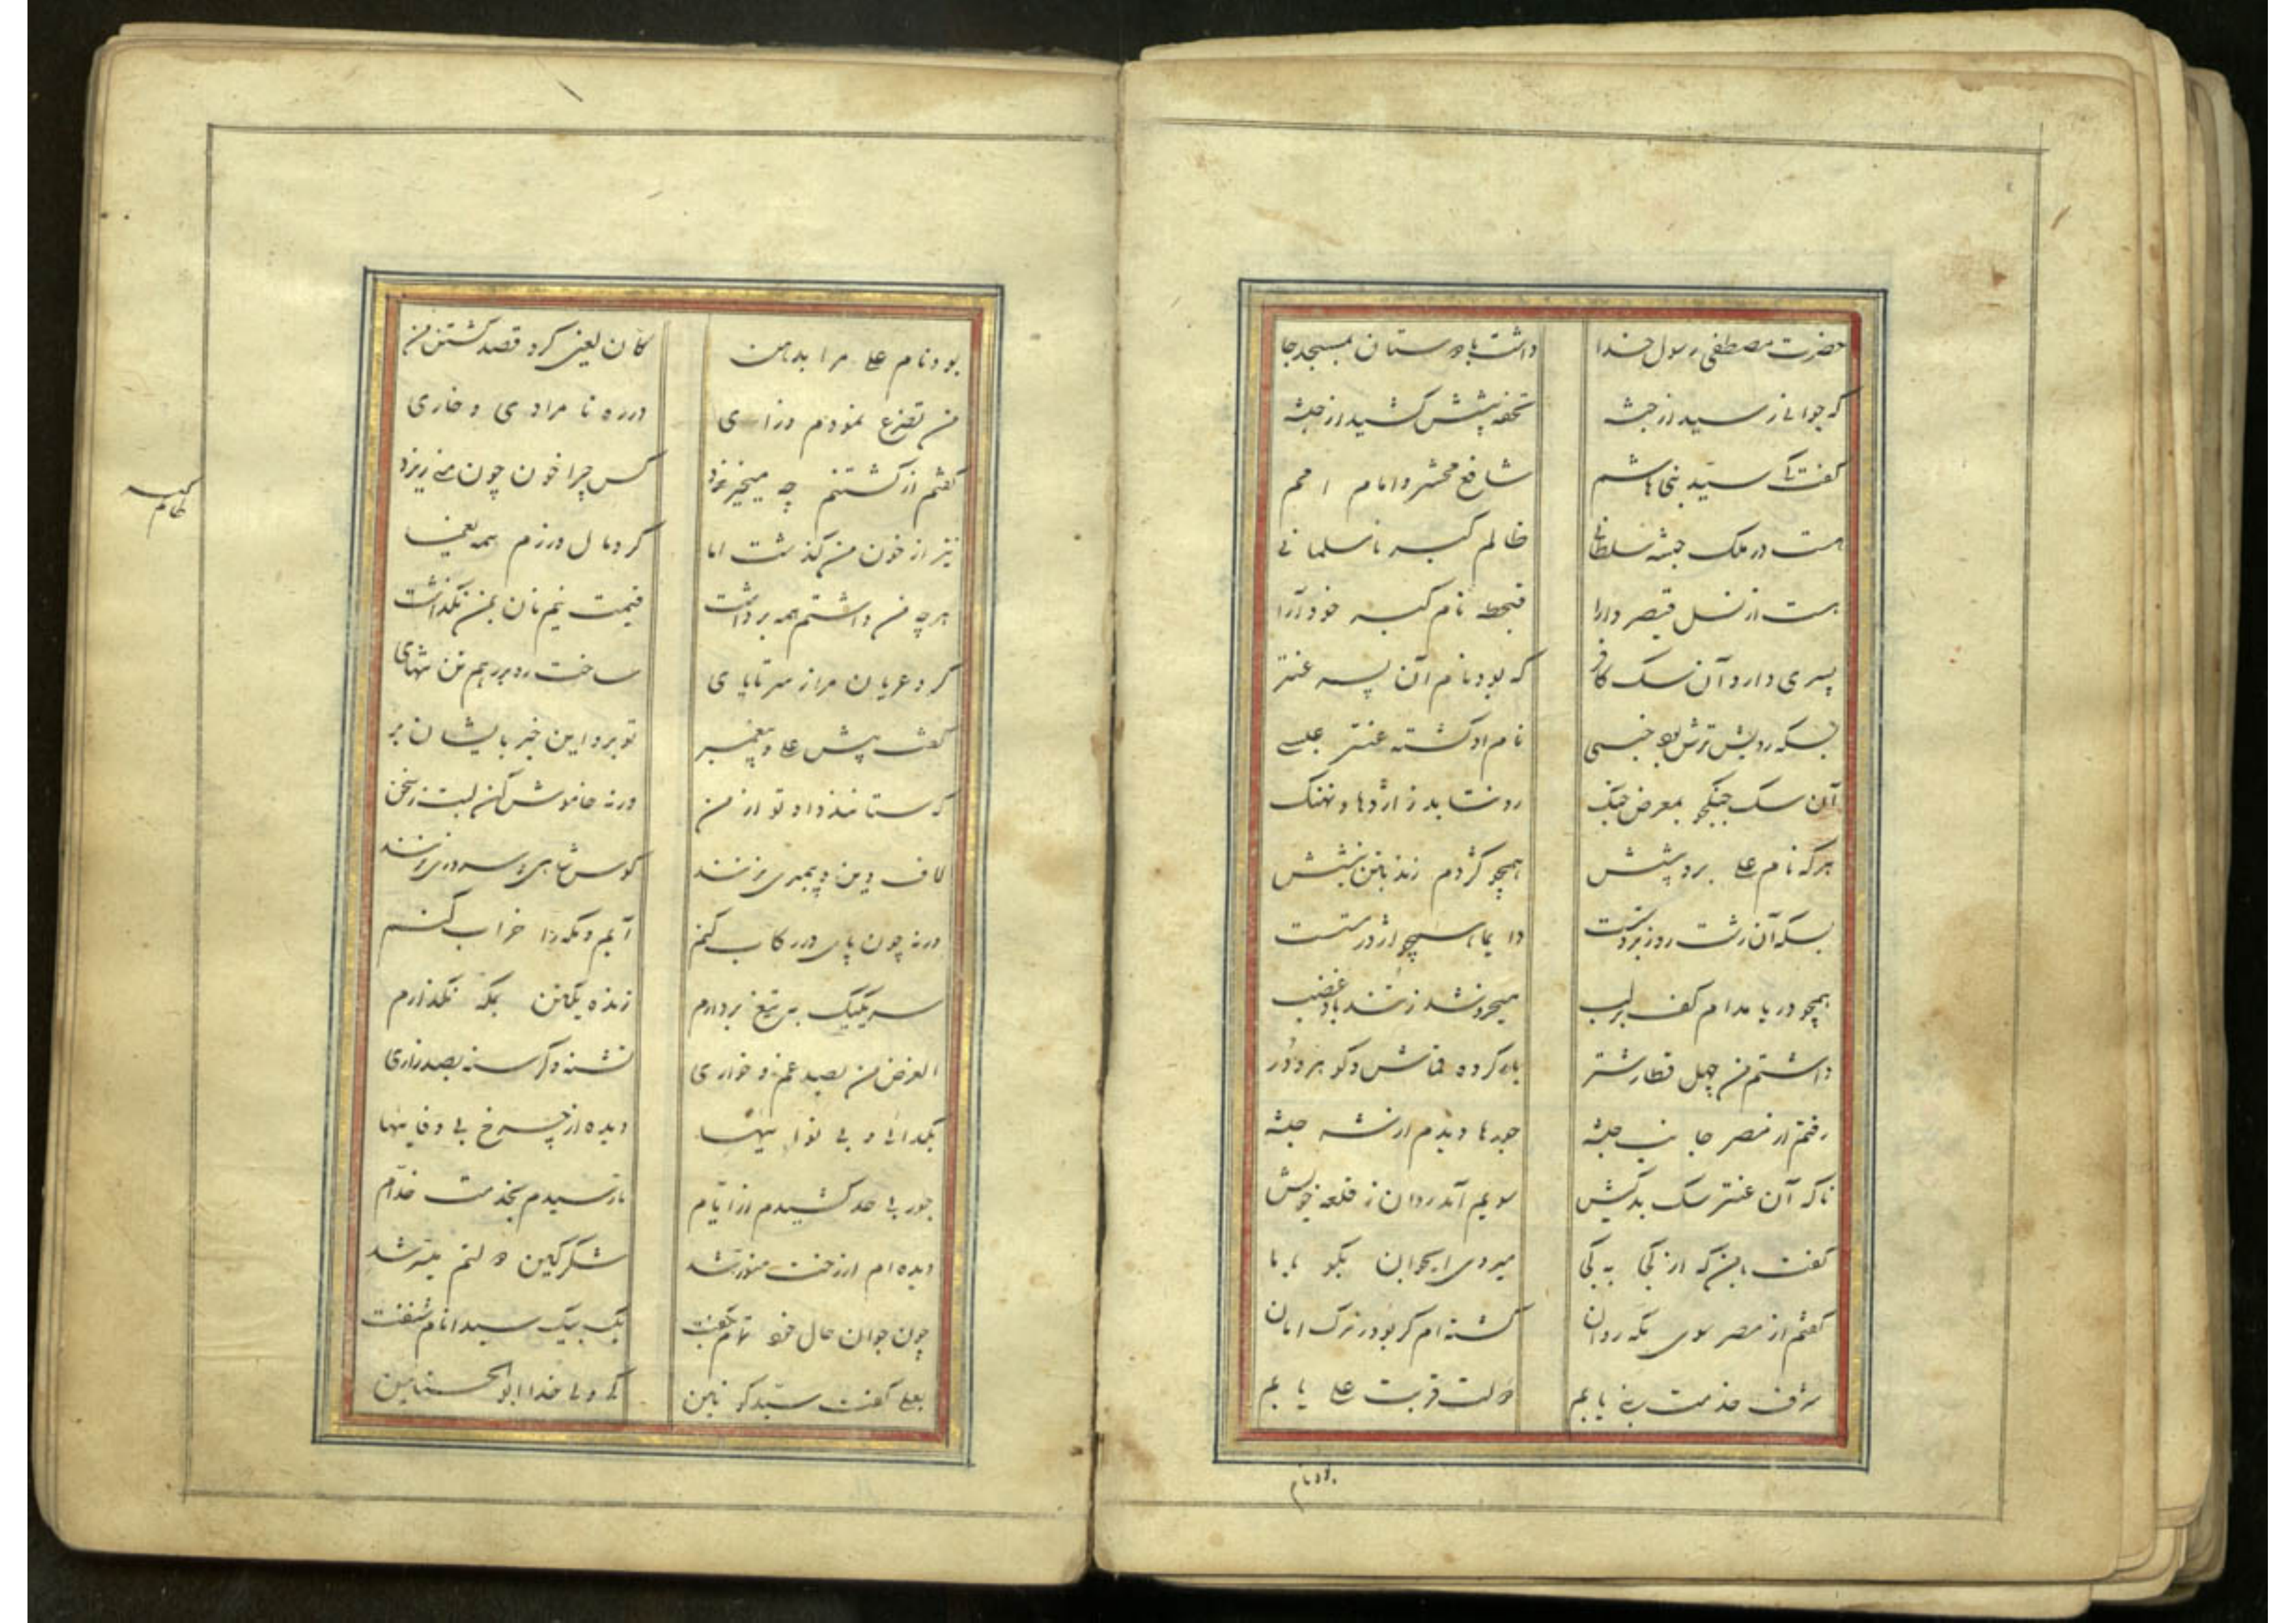 حضرت مصطفی رسول خدا داشت با دوستان بمسجد جا
که جوانی رسید از حبشه تحفه پیشش کشید از حبشه
گفت کای سید بنی هاشم شافع محشر و امام امم
هست در ملک حبشه سلطانی ظالم کبر نامسلمانی
هست از نسل قیصر و دارا نام کبر خودآرا
پسری دارد آن سک کافر که بود نام آن پسر عنتر
بسکه رویش ترش بود نام او کشته عنتر
آن سک جنکجو بمعرض جنک رو نتابد ز اژدها و نهنک
هرکه نام علی برد پیشش همچو کژدم زند بتن نیشش
بسکه آن زشت روز
همچو دریا مدام کف بر لب میخروشد ز تندباد غضب
داشتم من چهل قطار شتر بار کرده قماش و کوهر و در
رفتم از مصر جانب حبشه جورها دیدم از شه حبشه
ناکه آن عنتر سک بدکیش سویم آمد روان ز قلعه خویش
گفت با من که از کجا به کجا میروی ای جوان بکو با ما
گفتم از مصر سوی مکه روان کشته‌ام کر بود ز مرک امان
شرف خدمت نبی یابم دولت قربت علی یابم
بود نام
بود نام علی مرا بدهن کان لعین کرد قصد کشتن من
من تضرع نمودم و زاری در ره نامرادی و خاری
گفتم از کشتنم چه میخیزد کس چرا خون چون منی ریزد
نیز از خون من کذشت اما کرد مال و زرم همه یغما
هرچه من داشتم همه برداشت قیمت نیم نان بمن نکذاشت
کرد عریان مرا ز سر تا پای ساخت
گفت پیش علی و پیغمبر تو برو این خبر بایشان بر
که ستانند داد تو از من ورنه خاموش کن لبت ز سخن
لاف دین و پیمبری نزنند کوس شاهی و سروری نزنند
ورنه چون پای در رکاب کنم آیم و مکه را خراب کنم
سر یکیک به تیغ بردارم زنده یکتن بمکه نکذارم
الغرض من بصد غم و خواری تشنه و کرسنه بصد زاری
بکدائی و بی نوائیها دیده از چرخ بی وفائیها
جور بی حد کشیدم از ایام تا رسیدم بخدمت خدام
دیده‌ام از رخت منور شد شکر کاین دولتم میسر شد
چون جوان حال خود تمام بگفت یک بیک سید انام شنفت
بعلی گفت سید کونین کی ولی خدا ابوالحسنین